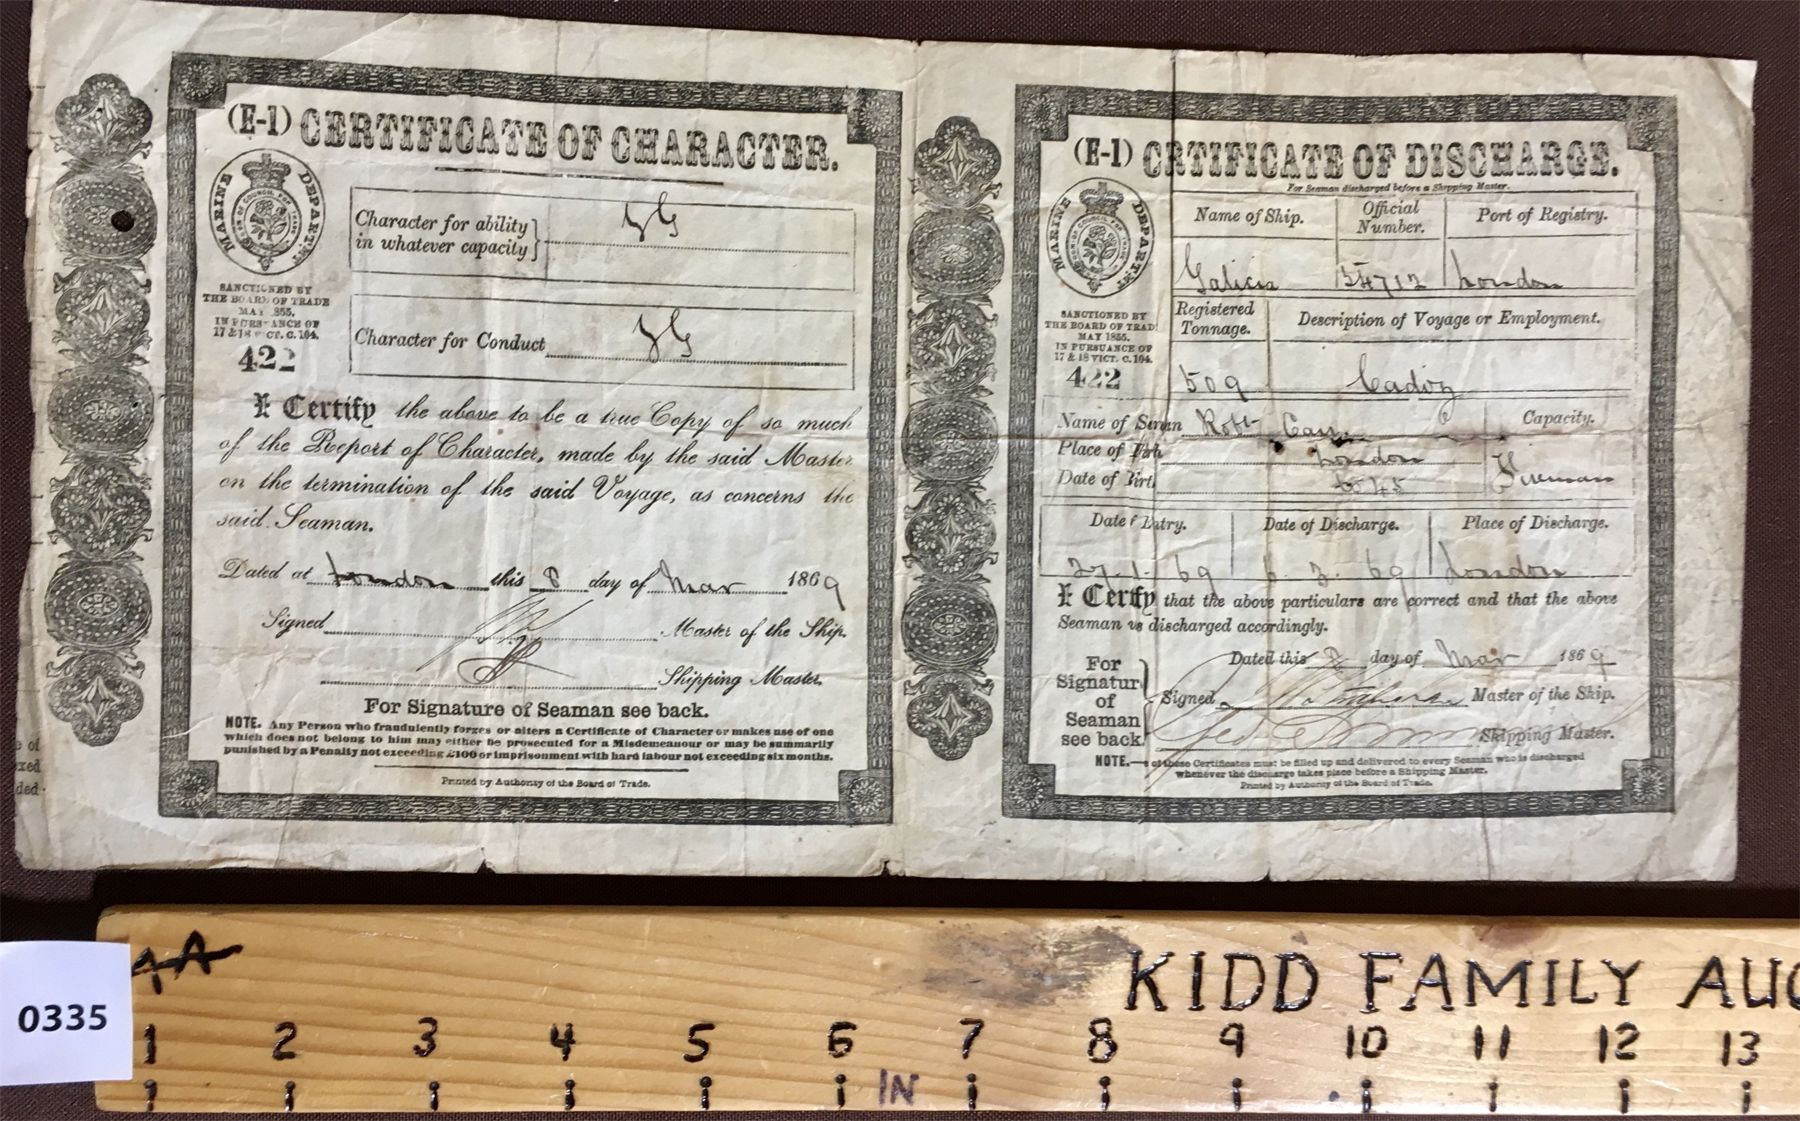 (E-1) CERTIFICATE OF CHARACTER.
MARINE DEPARTMT
SANCTIONED BY
THE BOARD OF TRADE
MAY 1855,
IN PURSUANCE OF
17 & 18 VICT. C. 104.
422
Character for ability
in whatever capacity
Character for Conduct
I Certify the above to be a true Copy of so much
of the Report of Character, made by the said Master
on the termination of the said Voyage, as concerns the
said Seaman.
Dated at London this 8 day of Mar 1869
Signed Master of the Ship.
Shipping Master.
For Signature of Seaman see back.
NOTE. Any Person who fraudulently forges or alters a Certificate of Character or makes use of one
which does not belong to him may either be prosecuted for a Misdemeanour or may be summarily
punished by a Penalty not exceeding £100 or imprisonment with hard labour not exceeding six months.
Printed by Authority of the Board of Trade.
e of
xed
ded
(E-1) CRTIFICATE OF DISCHARGE.
For Seaman discharged before a Shipping Master.
MARINE DEPARTMT
SANCTIONED BY
THE BOARD OF TRAD
MAY 1855,
IN PURSUANCE OF
17 & 18 VICT. C. 104.
422
Name of Ship. Official Number. Port of Registry.
Galicia 54712 London
Registered Tonnage. Description of Voyage or Employment.
509 Cadiz
Name of Seman Robt Carr Capacity.
Place of Birth London Fireman
Date of Birt
Date of Entry. Date of Discharge. Place of Discharge.
27.1.69 6.3.69 London
I Certfy that the above particulars are correct and that the above
Seaman is discharged accordingly.
Dated this 8 day of Mar 1869
For
Signatur
of
Seaman
see back.
Signed Master of the Ship.
Shipping Master.
NOTE.— of these Certificates must be filled up and delivered to every Seaman who is discharged
whenever the discharge takes place before a Shipping Master.
Printed by Authority of the Board of Trade.
0335
KIDD FAMILY AUC
1 2 3 4 5 6 7 8 9 10 11 12 13
IN